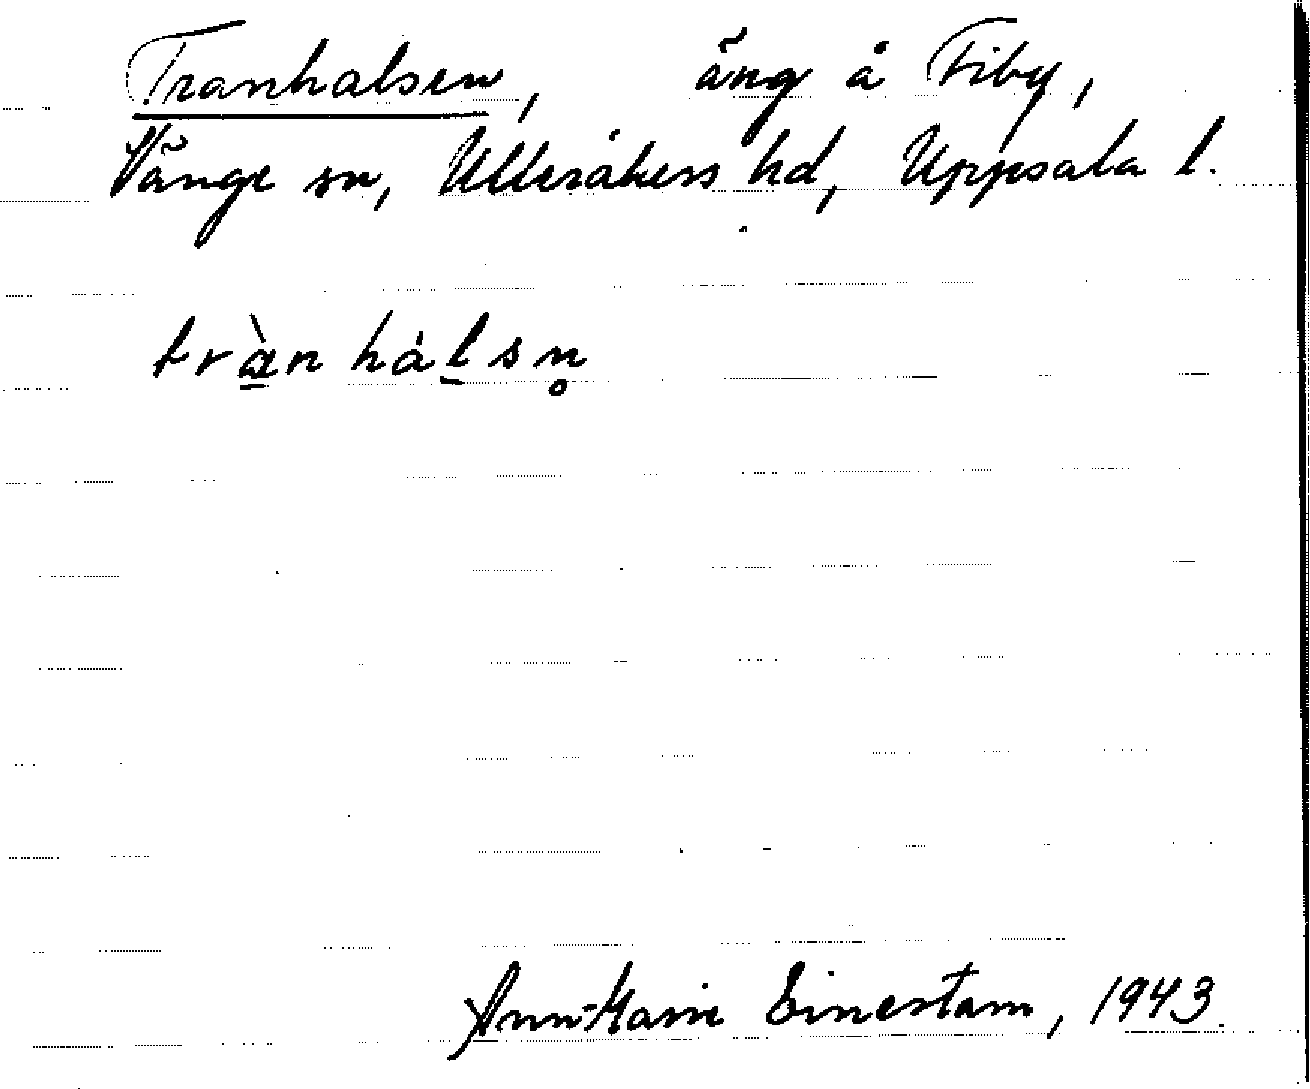 Tranhalsen, äng å Fiby,
Vänge sn, Ulleråkers hd, Uppsala l.
tràn hál̠sn̥
Ann-Marie Einestam, 1943.